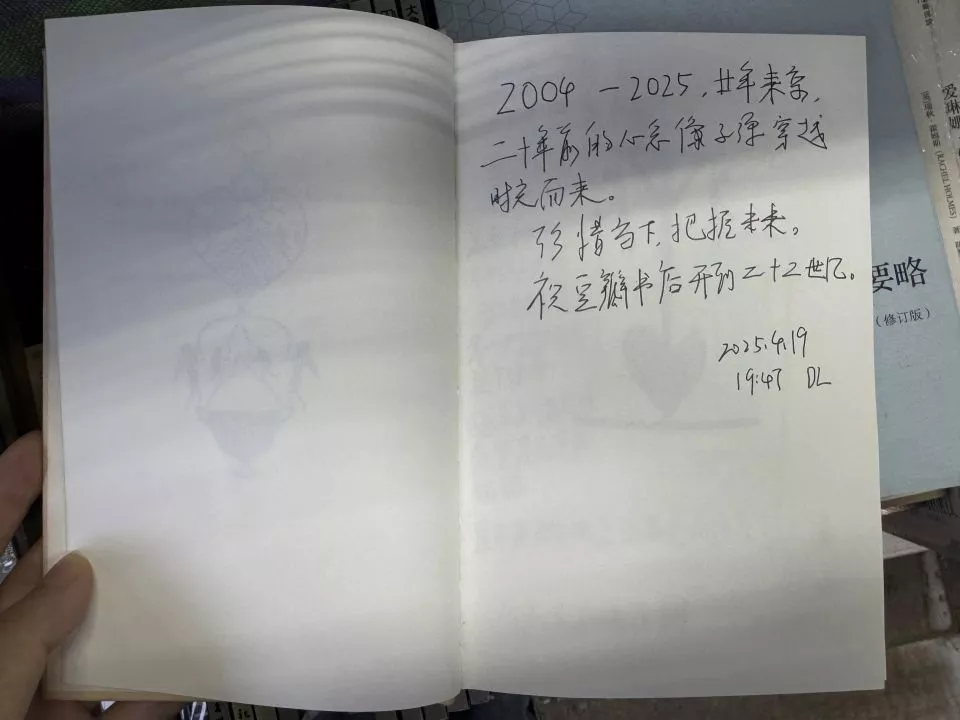 2004 — 2025，廿年来京，
二十年前的心念像子弹穿越
时空而来。
珍惜当下，把握未来。
祝豆瓣书店开到二十二世纪。
2025.4.19
19:47 DL
要略
（修订版）
爱琳娜
(RACHEL HOLMES) 著